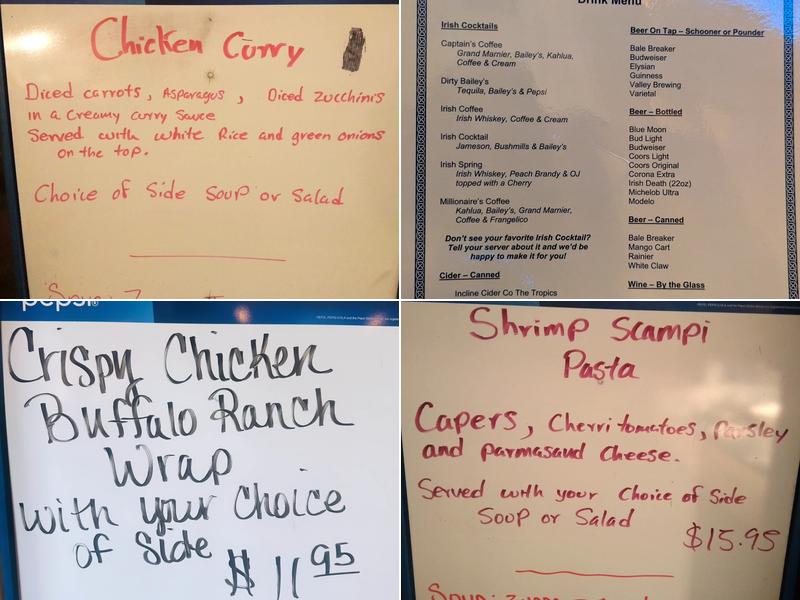 Chicken Curry
Diced carrots, Asparagus, Diced Zucchinis
in a Creamy curry Sauce
Served with white Rice and green onions
on the top.
Choice of Side Soup or Salad
Drink Menu
Irish Cocktails
Captain's Coffee
Grand Marnier, Bailey's, Kahlua,
Coffee & Cream
Dirty Bailey's
Tequila, Bailey's & Pepsi
Irish Coffee
Irish Whiskey, Coffee & Cream
Irish Cocktail
Jameson, Bushmills & Bailey's
Irish Spring
Irish Whiskey, Peach Brandy & OJ
topped with a Cherry
Millionaire's Coffee
Kahlua, Bailey's, Grand Marnier,
Coffee & Frangelico
Don't see your favorite Irish Cocktail?
Tell your server about it and we'd be
happy to make it for you!
Cider – Canned
Incline Cider Co The Tropics
Beer On Tap – Schooner or Pounder
Bale Breaker
Budweiser
Elysian
Guinness
Valley Brewing
Varietal
Beer – Bottled
Blue Moon
Bud Light
Budweiser
Coors Light
Coors Original
Corona Extra
Irish Death (22oz)
Michelob Ultra
Modelo
Beer – Canned
Bale Breaker
Mango Cart
Rainier
White Claw
Wine – By the Glass
pepsi
Crispy Chicken
Buffalo Ranch
Wrap
with your Choice
of Side $11.95
Shrimp Scampi
Pasta
Capers, Cherri tomatoes, Parsley
and parmasaud Cheese.
Served with your Choice of Side
Soup or Salad
$15.95